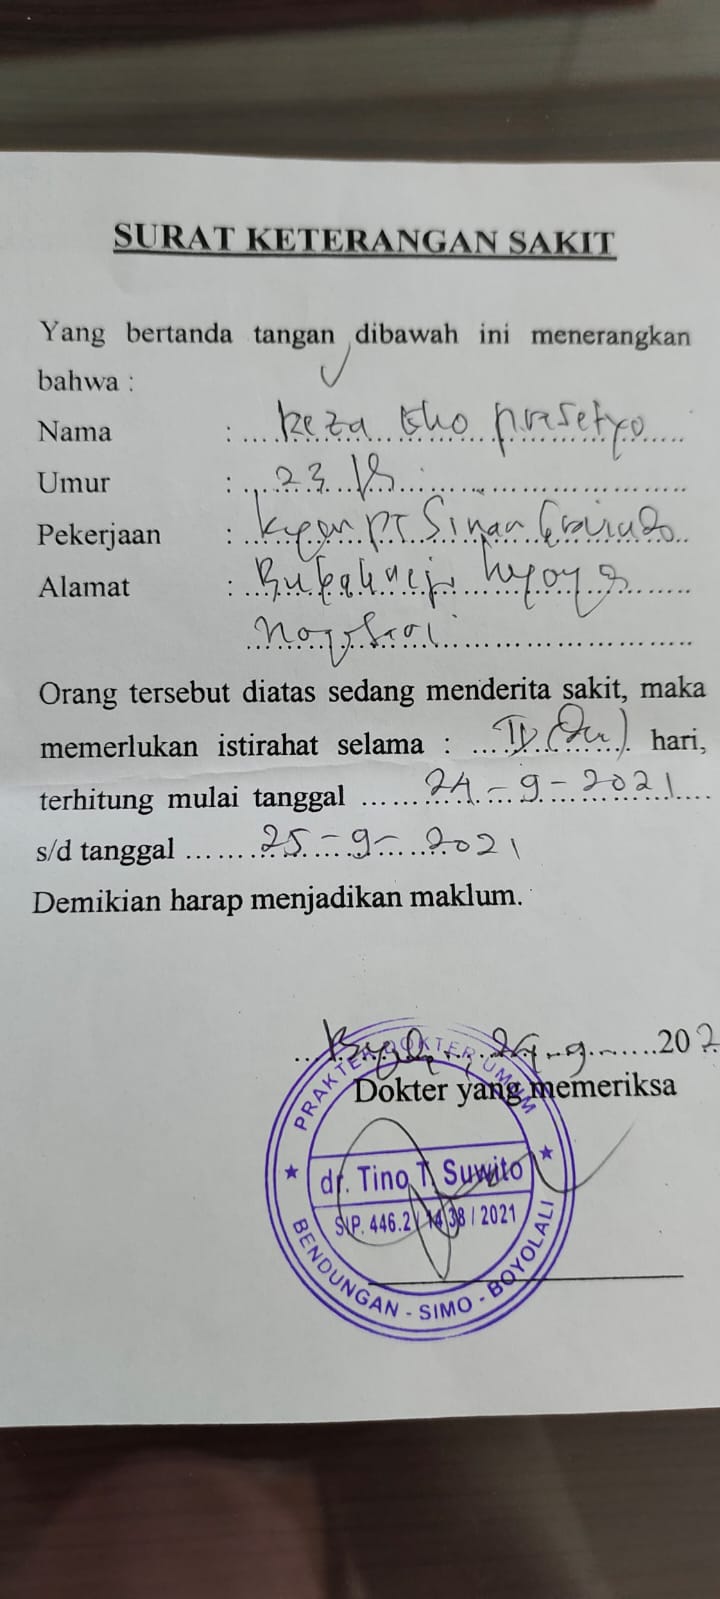 SURAT KETERANGAN SAKIT
Yang bertanda tangan dibawah ini menerangkan
bahwa :
Nama : Reza Eko prasetyo
Umur : 23 th
Pekerjaan : PT Sinan
Alamat :
Nogosari
Orang tersebut diatas sedang menderita sakit, maka
memerlukan istirahat selama : II (Dua) hari,
terhitung mulai tanggal 24-9-2021
s/d tanggal 25-9-2021
Demikian harap menjadikan maklum.
24-9- 202
Dokter yang memeriksa
PRAKTEK DOKTER UMUM
dr. Tino T. Suwito
SIP. 446.2 / 1438 / 2021
BENDUNGAN - SIMO - BOYOLALI